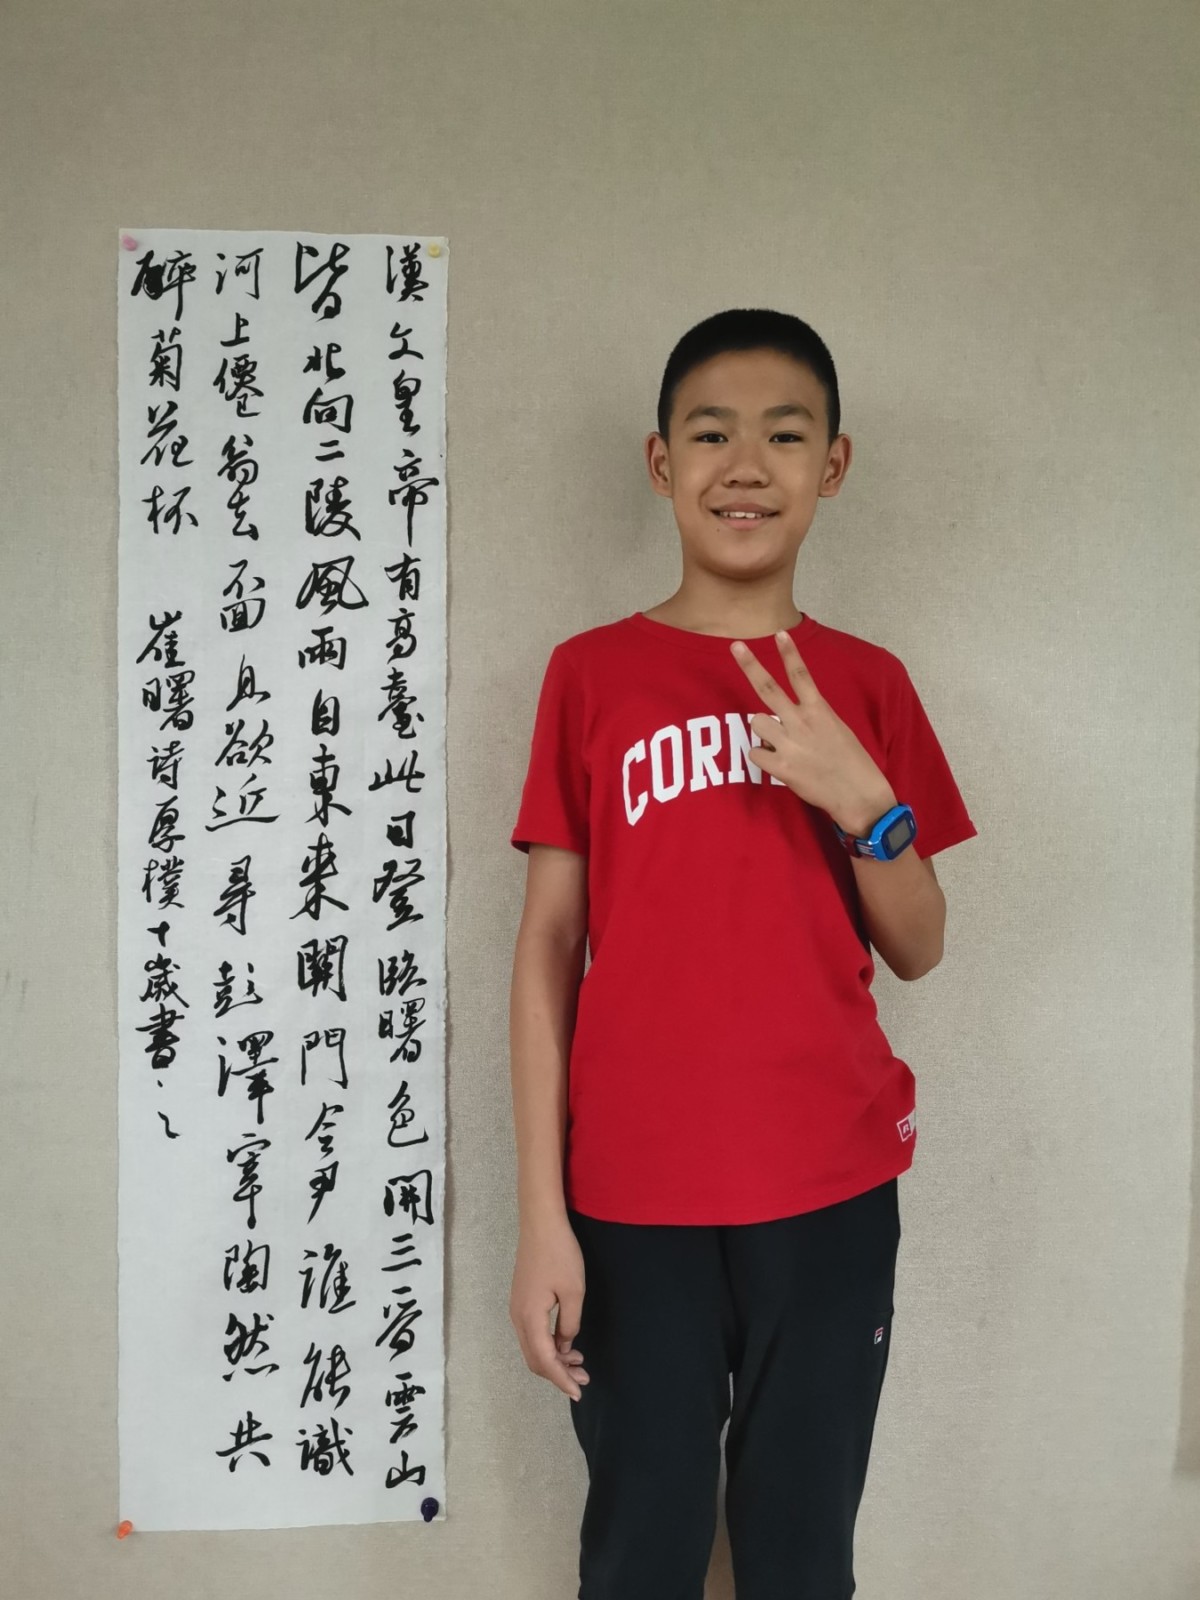 漢文皇帝有高臺此日登臨曙色開三晉雲山
皆北向二陵風雨自東來關門令尹誰能識
河上僊翁去不回且欲近尋彭澤宰陶然共
醉菊花杯 崔曙詩厚樸十歲書之
CORN